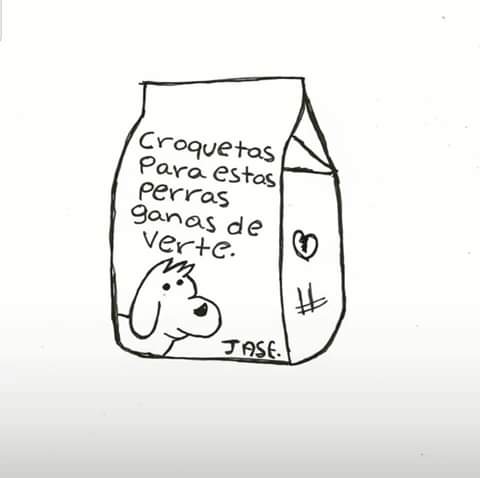 Croquetas
Para estas
perras
ganas de
verte.
JASE.
#